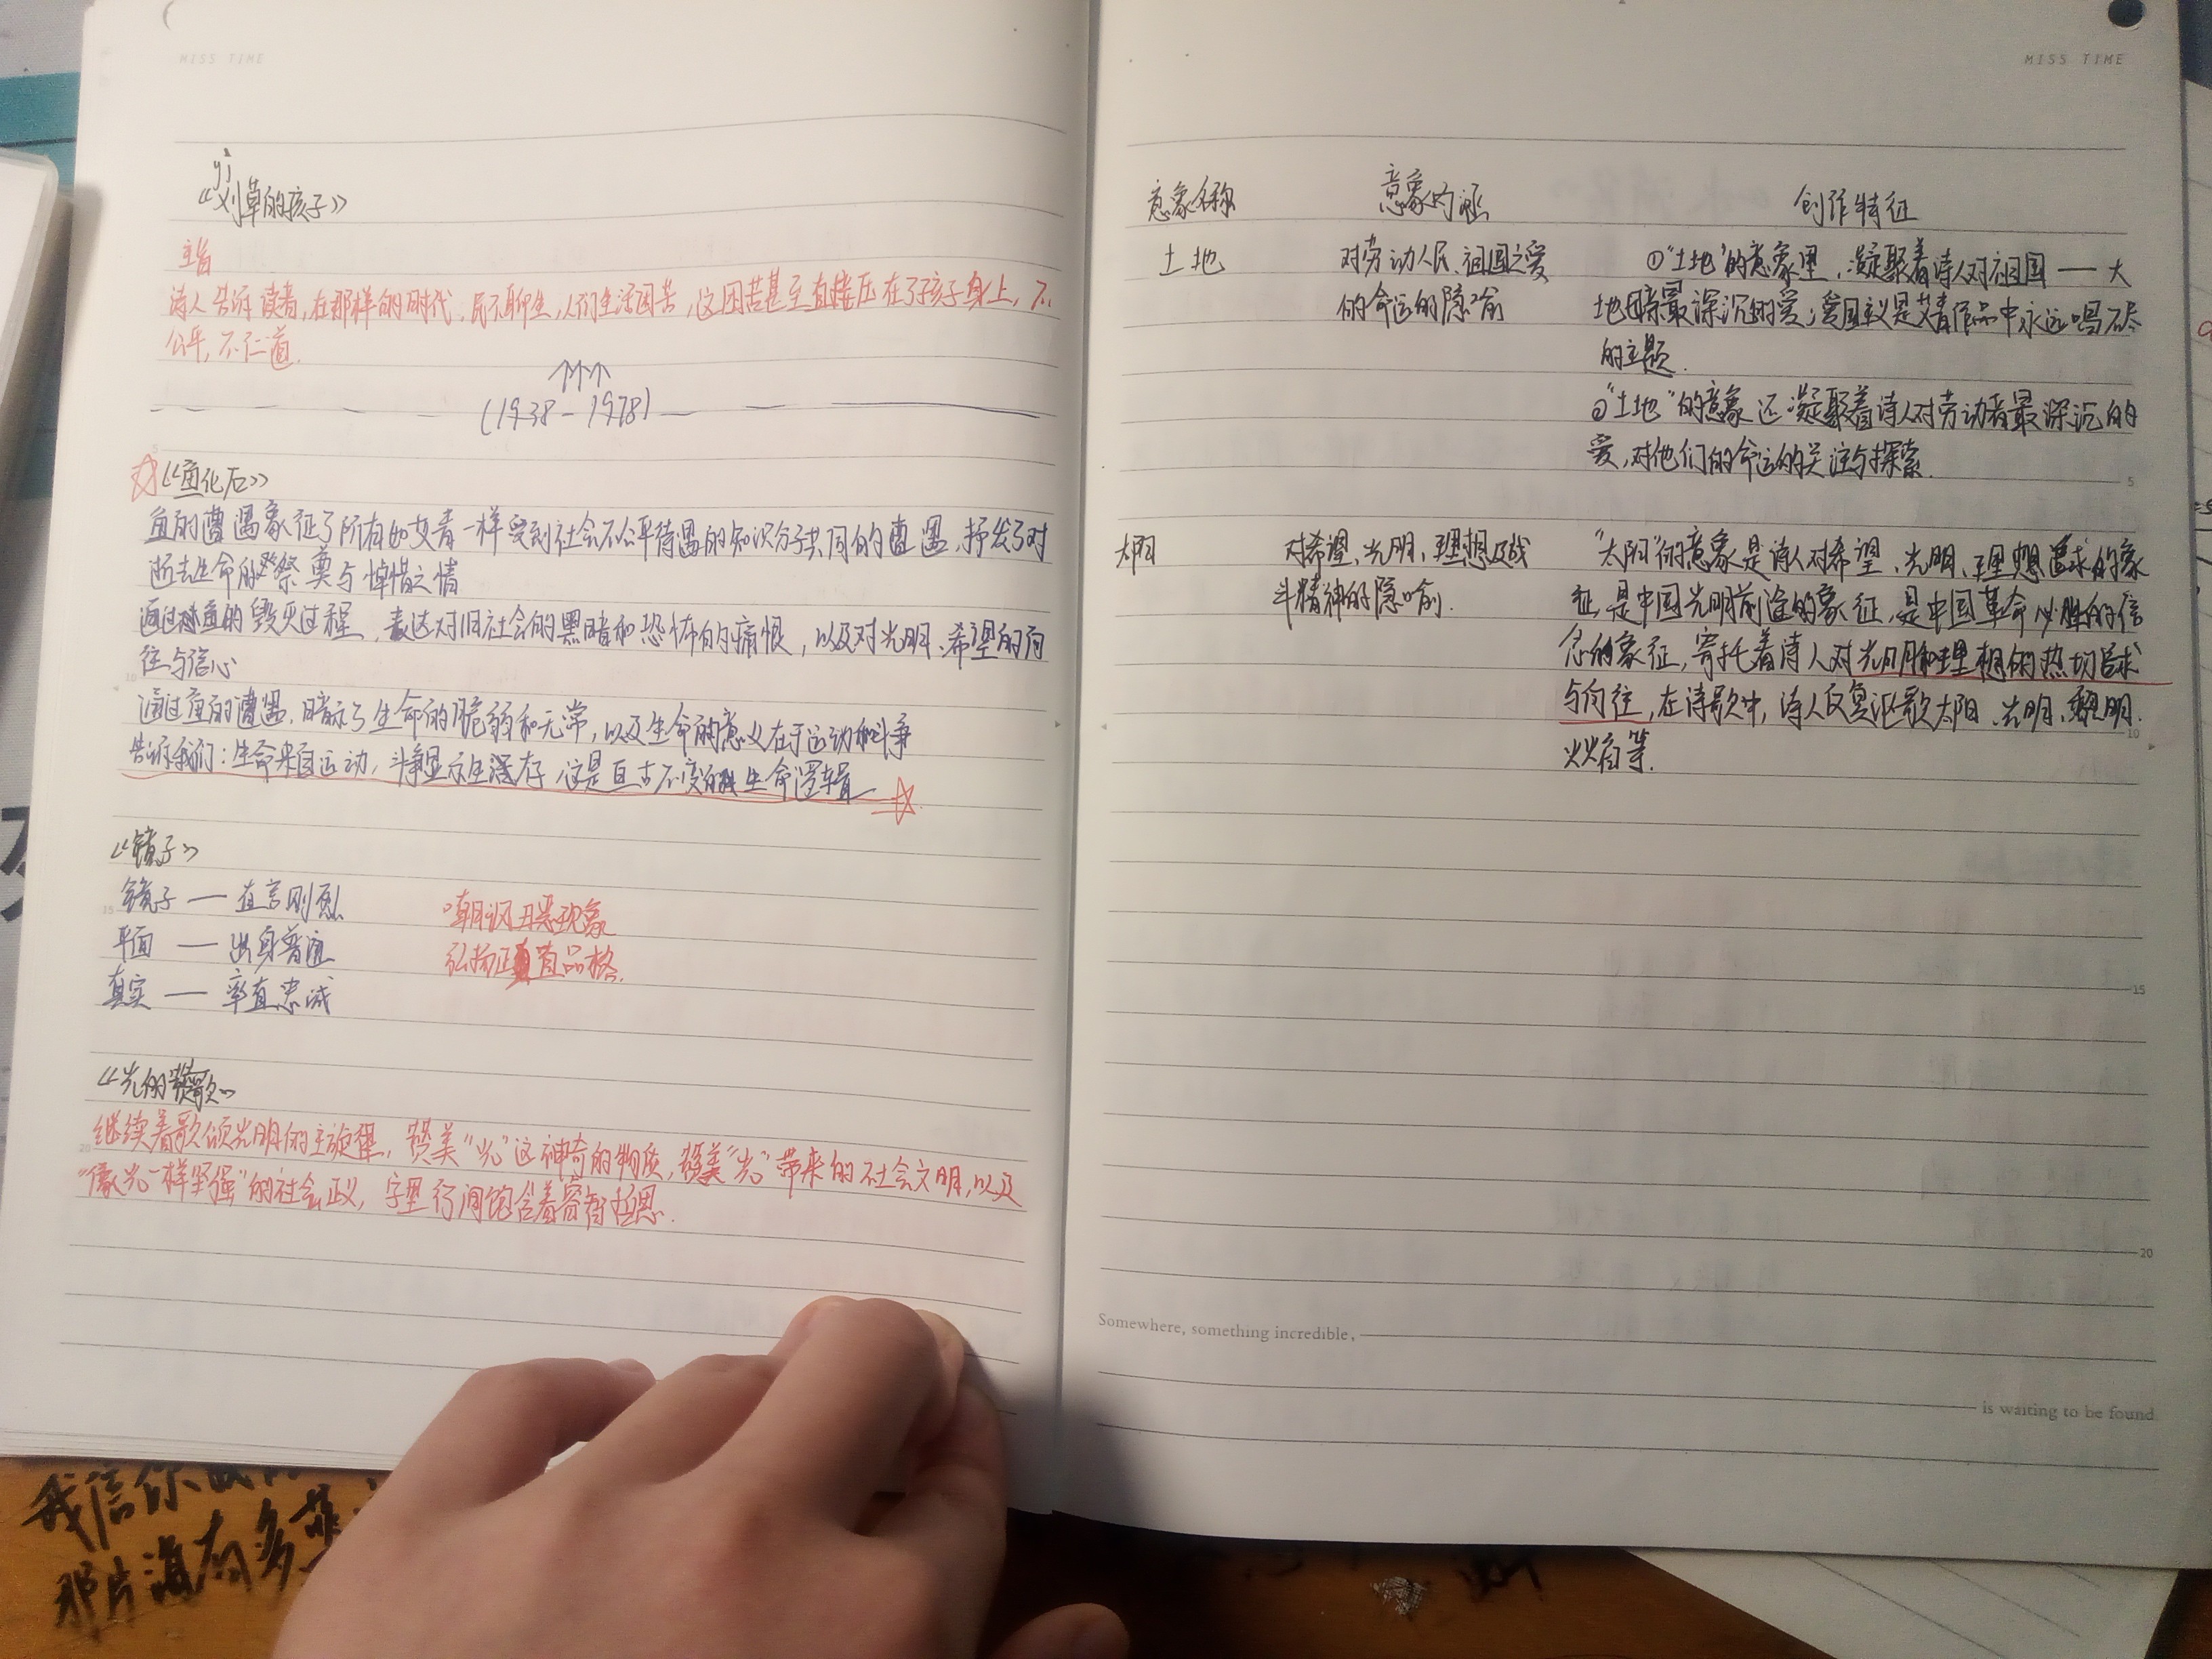 MISS TIME
yì
《刈草的孩子》
主旨
诗人告诉读者，在那样的时代，民不聊生，人们生活困苦，这困苦甚至直接压在了孩子身上，不
公平，不仁道.
(1938-1978)
《鱼化石》
鱼的遭遇象征了所有如艾青一样受到社会不公平待遇的知识分子共同的遭遇，抒发了对
逝去生命的祭奠与惋惜之情
通过鱼的毁灭过程，表达对旧社会的黑暗和恐怖的痛恨，以及对光明、希望的向
往与信心
通过鱼的遭遇，暗示了生命的脆弱和无常，以及生命的意义在于运动和斗争
告诉我们：生命来自运动，斗争显示生存，这是亘古不变的生命逻辑
《镜子》
镜子 — 直言刚烈
嘲讽丑恶现象
平面 — 出身普通
弘扬正直品格.
真实 — 率直忠诚
《光的赞歌》
继续着歌颂光明的主旋律，赞美"光"这神奇的物质，赞美"光"带来的社会文明，以及
"像光一样坚强"的社会正义，字里行间饱含着睿智哲思.
MISS TIME
意象名称 意象内涵 创作特征
土地 对劳动人民、祖国之爱 ①"土地"的意象里，凝聚着诗人对祖国 — 大
的命运的隐喻 地母亲最深沉的爱；爱国主义是艾青作品中永远唱不尽
的主题.
②"土地"的意象还凝聚着诗人对劳动者最深沉的
爱，对他们的命运的关注与探索.
太阳 对希望、光明、理想及战 "太阳"的意象是诗人对希望、光明、理想追求的象
斗精神的隐喻. 征，是中国光明前途的象征，是中国革命必胜的信
念的象征，寄托着诗人对光明和理想的热切追求
与向往，在诗歌中，诗人反复讴歌太阳、光明、黎明、
火焰等.
5
10
15
20
5
10
15
20
Somewhere, something incredible,
is waiting to be found
我信你
那片海有多